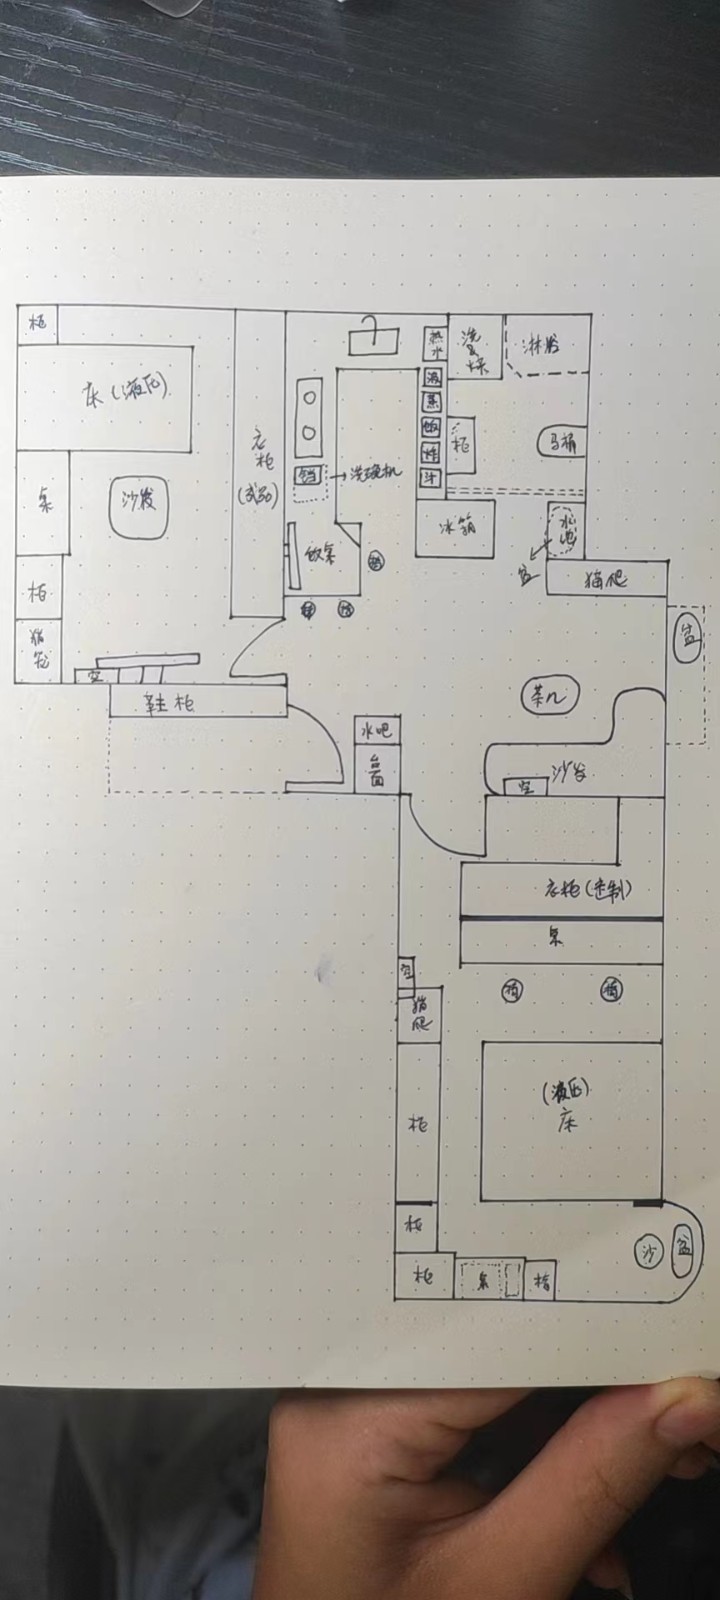 柜
床(液压)
桌
沙发
柜
猫
空
衣
柜
(成品)
热
水
洗
烘
淋浴
蒸
饭
烤
柜
马桶
洗碗机
冰箱
水
池
盆
饭桌
猫爬
盆
鞋柜
水吧
台
面
茶几
沙发
空
衣柜(定制)
桌
空
猫
爬
椅
椅
(液压)
床
柜
柜
柜
桌
柜
沙
盆